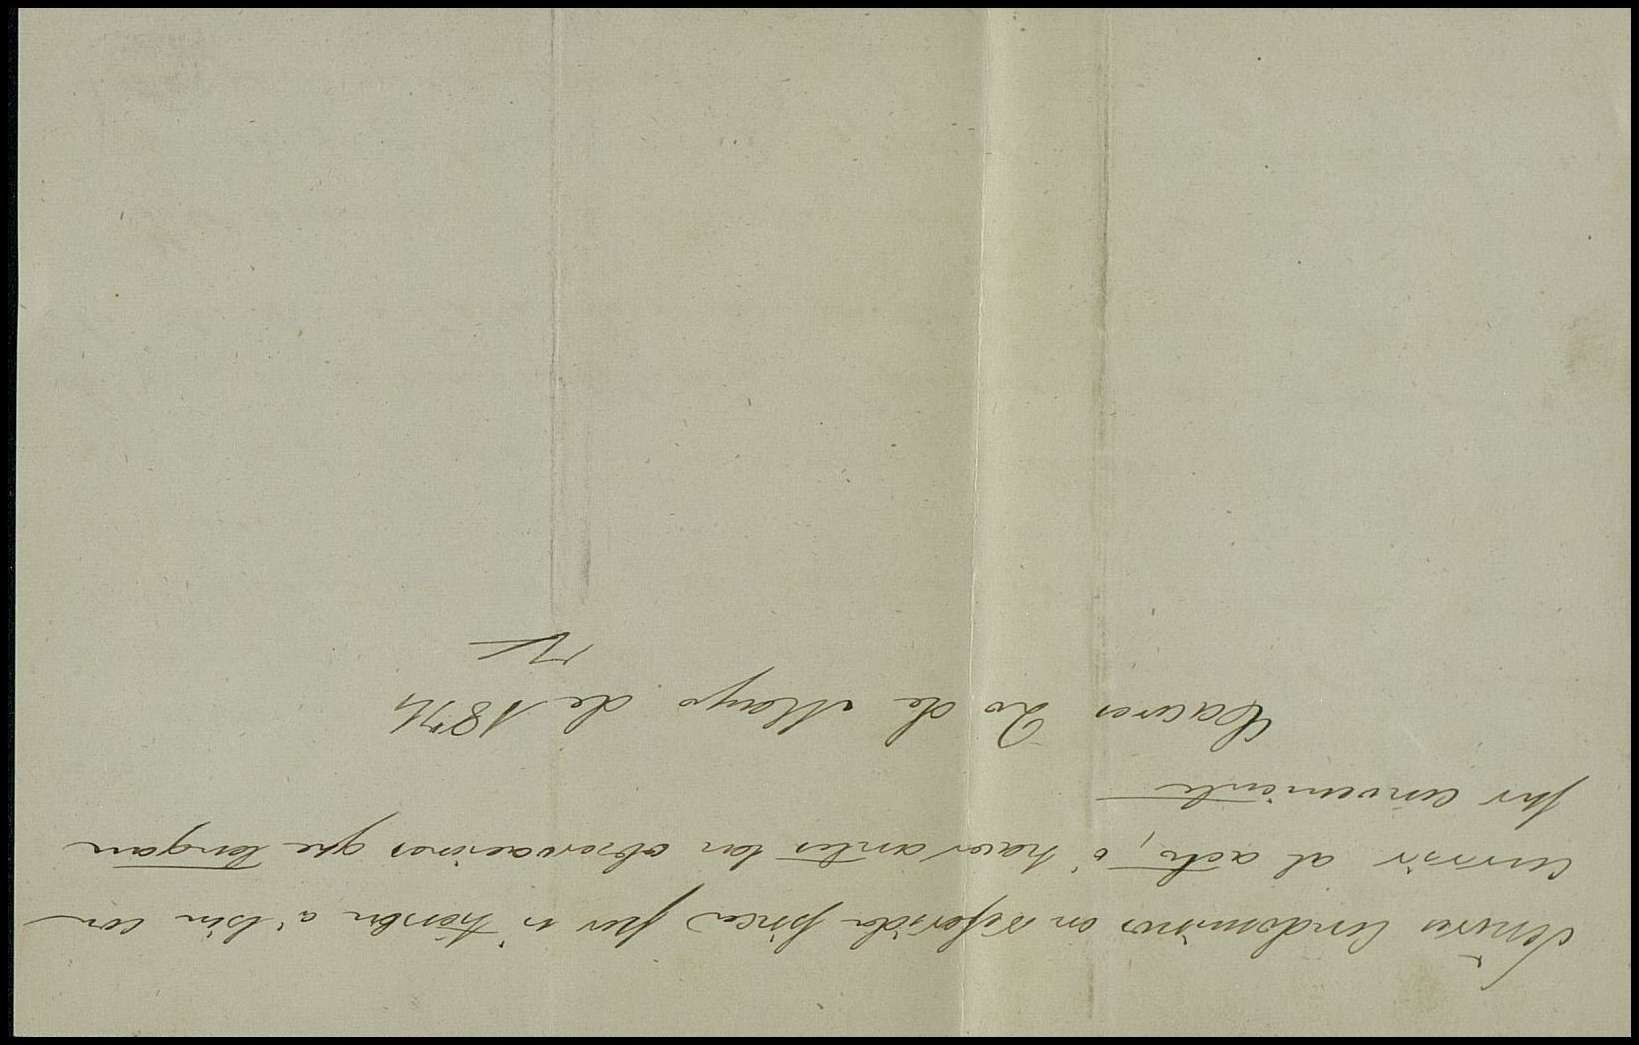 Señores Condominos en referida finca por si tienen a bien con
currir al acto, ó hacer antes las observaciones que tengan
por conveniente
Caceres 20 de Mayo de 1874